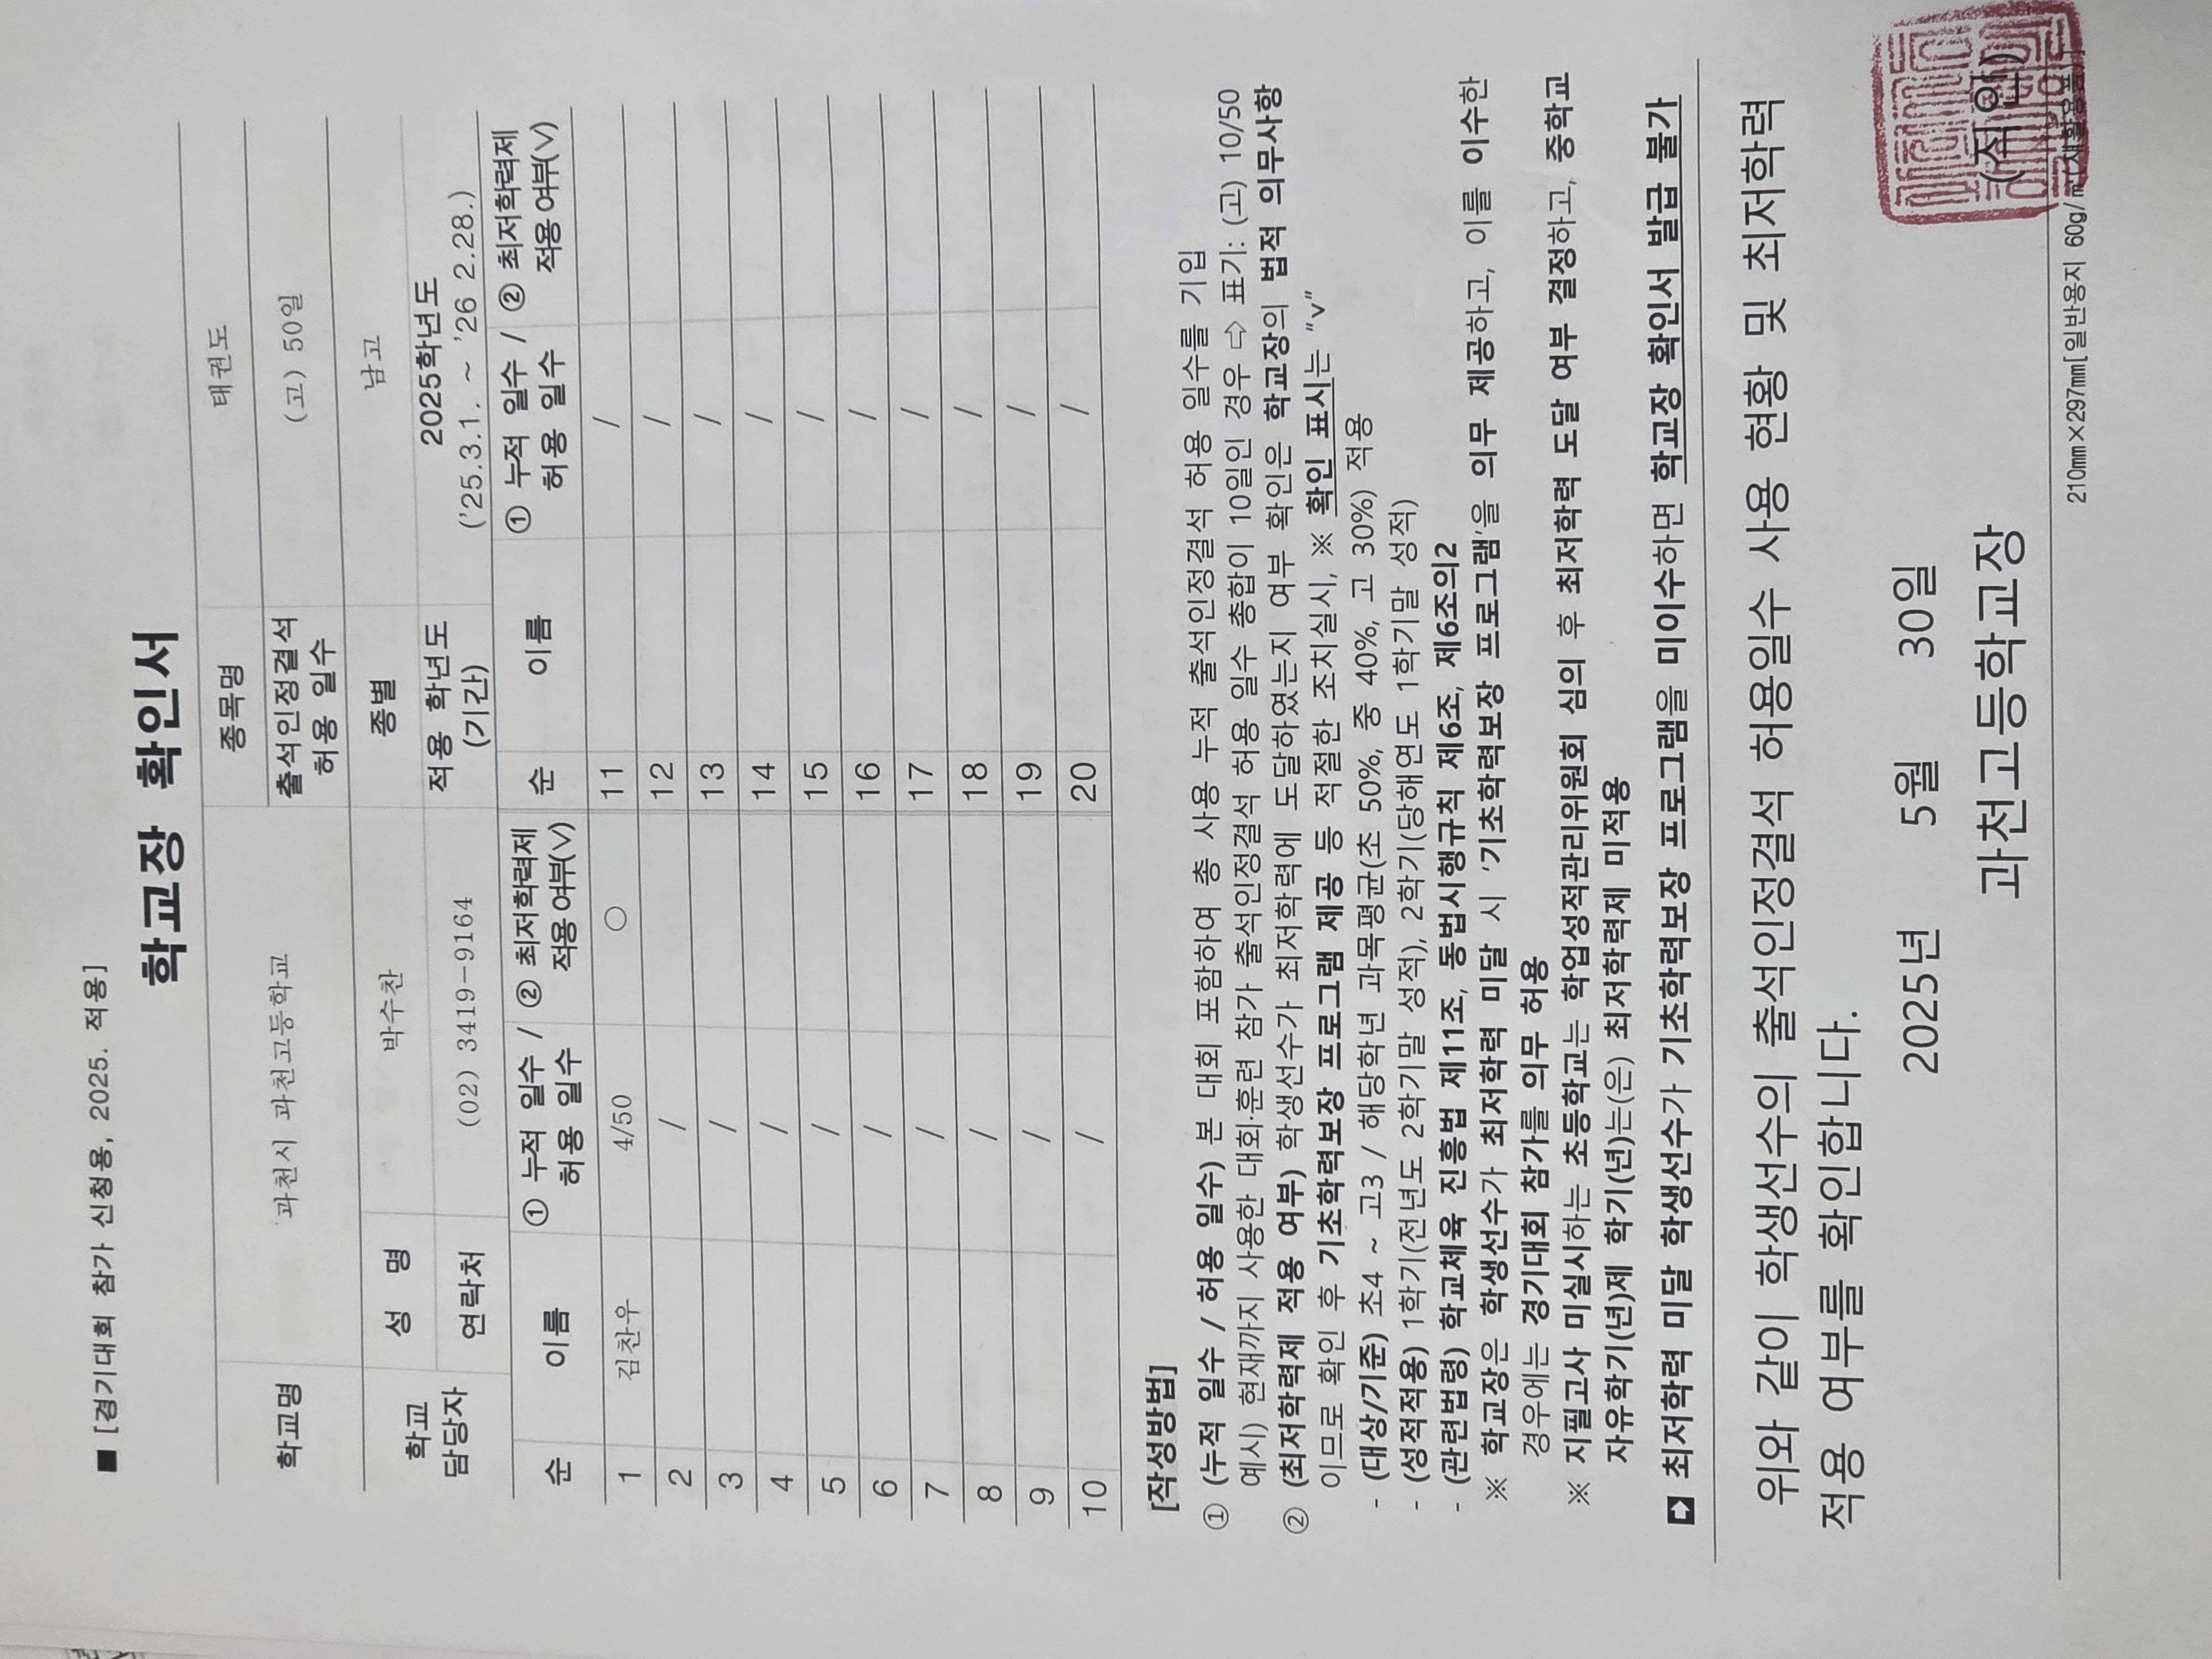 ■ [경기대회 참가 신청용, 2025. 적용]
학교장 확인서
학교명 과천시 과천고등학교 종목명 태권도
출석인정결석 허용 일수 (고) 50일
학교 담당자 성 명 박수찬 종별 남고
연락처 (02) 3419-9164 적용 학년도 (기간) 2025학년도 ('25.3.1. ~ '26 2.28.)
순 이름 ① 누적 일수 / 허용 일수 ② 최저학력제 적용여부(v) 순 이름 ① 누적 일수 / 허용 일수 ② 최저학력제 적용여부(v)
1 김찬우 4/50 ○ 11 /
2 / 12 /
3 / 13 /
4 / 14 /
5 / 15 /
6 / 16 /
7 / 17 /
8 / 18 /
9 / 19 /
10 / 20 /
[작성방법]
① (누적 일수 / 허용 일수) 본 대회 포함하여 총 사용 누적 출석인정결석 허용 일수를 기입
예시) 현재까지 사용한 대회·훈련 참가 출석인정결석 허용 일수 총합이 10일인 경우 ⇨ 표기: (고) 10/50
② (최저학력제 적용 여부) 학생선수가 최저학력에 도달하였는지 여부 확인은 학교장의 법적 의무사항
이므로 확인 후 기초학력보장 프로그램 제공 등 적절한 조치실시, ※ 확인 표시는 "v"
- (대상/기준) 초4 ~ 고3 / 해당학년 과목평균(초 50%, 중 40%, 고 30%) 적용
- (성적적용) 1학기(전년도 2학기말 성적), 2학기(당해연도 1학기말 성적)
- (관련법령) 학교체육 진흥법 제11조, 동법시행규칙 제6조, 제6조의2
※ 학교장은 학생선수가 최저학력 미달 시 '기초학력보장 프로그램'을 의무 제공하고, 이를 이수한
경우에는 경기대회 참가를 의무 허용
※ 지필고사 미실시하는 초등학교는 학업성적관리위원회 심의 후 최저학력 도달 여부 결정하고, 중학교
자유학기(년)제 학기(년)는(은) 최저학력제 미적용
➡ 최저학력 미달 학생선수가 기초학력보장 프로그램을 미이수하면 학교장 확인서 발급 불가
위와 같이 학생선수의 출석인정결석 허용일수 사용 현황 및 최저학력
적용 여부를 확인합니다.
2025년 5월 30일
과천고등학교장 (직인)
210mm×297mm[일반용지 60g/㎡(재활용품)]